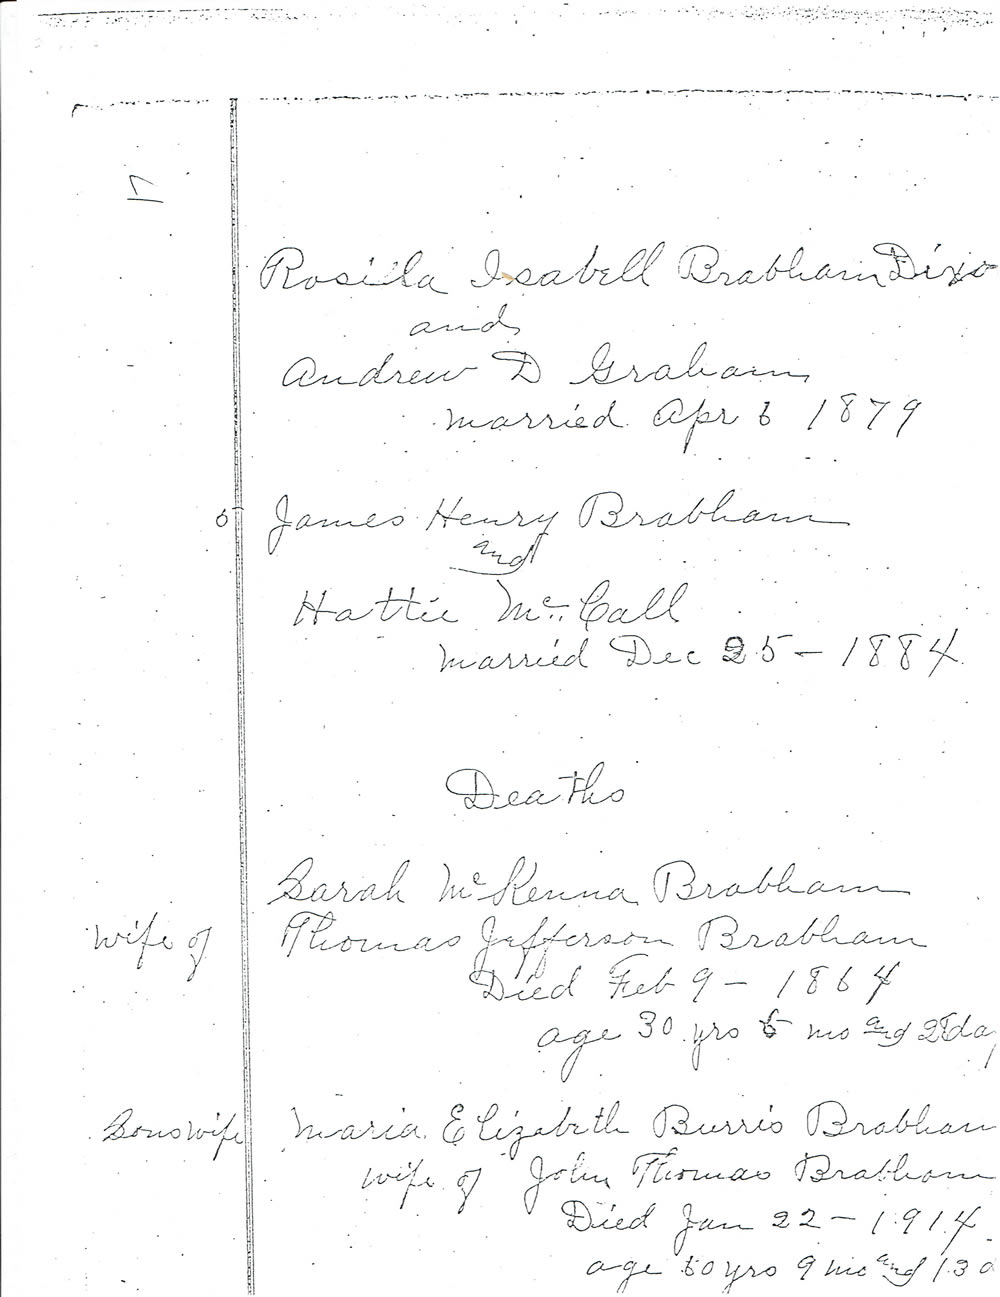 17
Rosilla Isabell Brabham Dixo
and
Andrew D Graham
married Apr 6 1879
6 James Henry Brabham
and
Hattie Mc Call
married Dec 25 - 1884
Deaths
Sarah McKenna Brabham
wife of Thomas Jefferson Brabham
Died Feb 9 - 1864
age 30 yrs 5 mo and 28 day
Sons wife Maria Elizabeth Burris Brabham
wife of John Thomas Brabham
Died Jan 22 - 1914
age 50 yrs 9 mo and 13 d